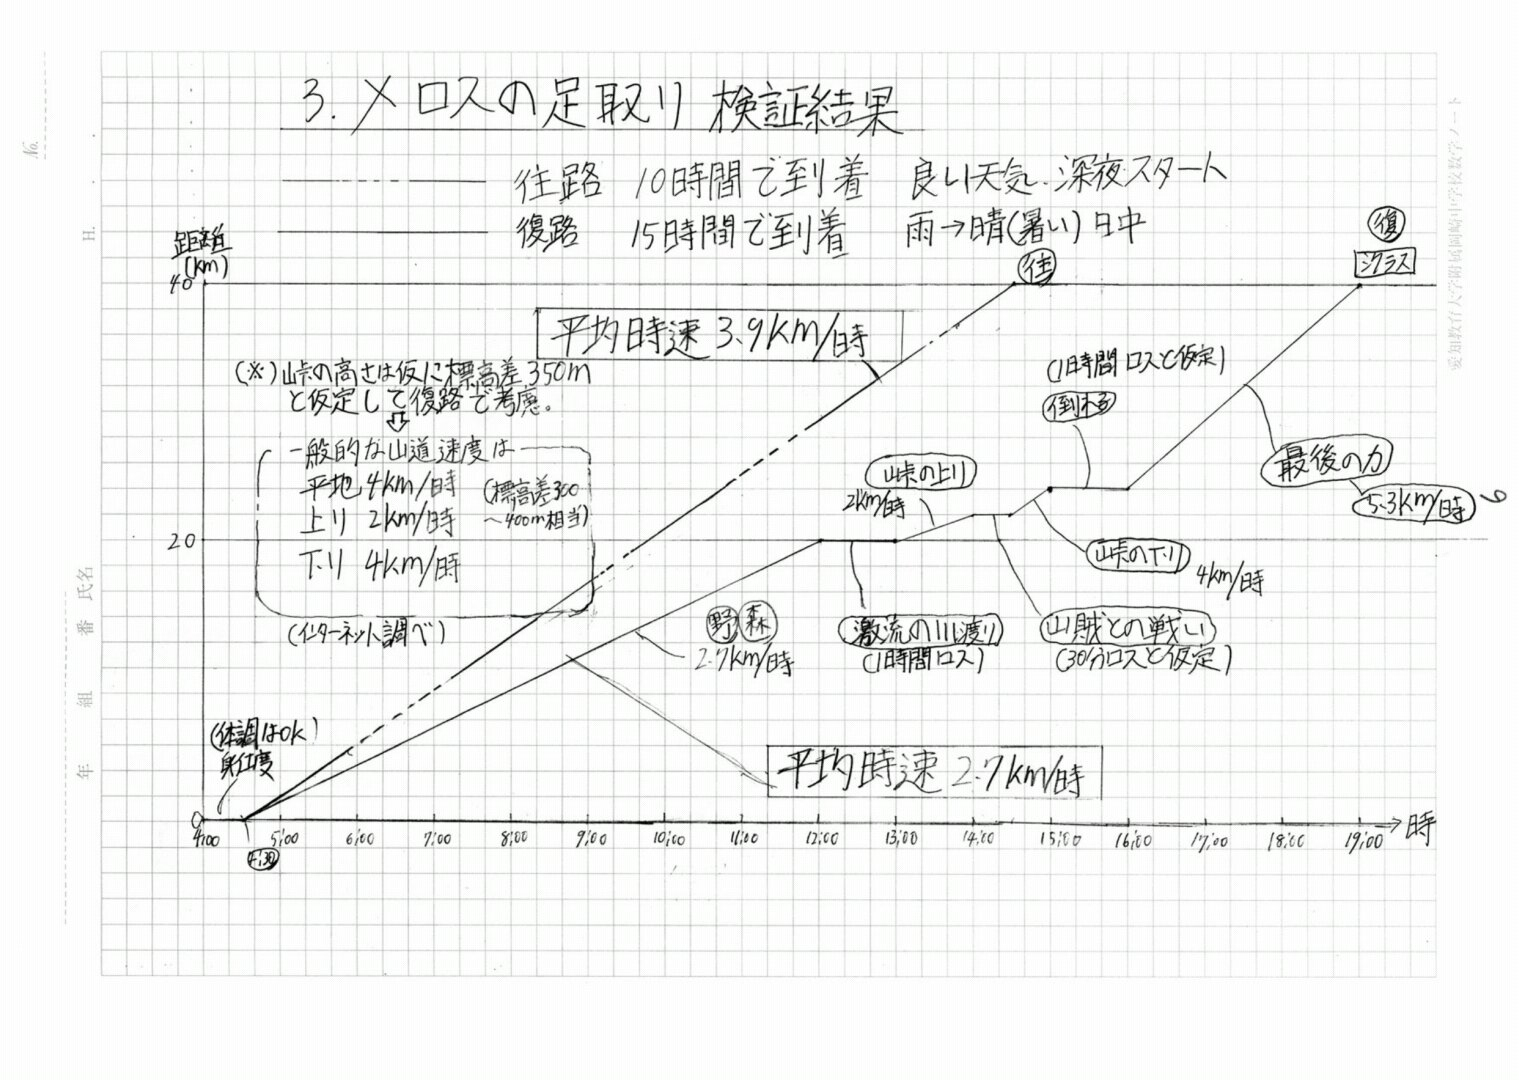 3.メロスの足取り 検証結果
往路 10時間で到着 良い天気.深夜スタート
復路 15時間で到着 雨→晴(暑い)日中
距離
(km)
40
往
復
シラクス
平均時速 3.9km/時
(※)山峠の高さは仮に標高差350m
と仮定して復路で考慮。
⇩
一般的な山道速度は
平地 4km/時
上り 2km/時
下り 4km/時
(標高差300
~400m相当)
(インターネット調べ)
(1時間ロスと仮定)
倒れる
峠の上り
2km/時
最後の力
5.3km/時
峠の下り
4km/時
20
野 森
2.7km/時
激流の川渡り
(1時間ロス)
山賊との戦い
(30分ロスと仮定)
(体調はOK)
身仕度
平均時速 2.7km/時
0
4:00 5:00 6:00 7:00 8:00 9:00 10:00 11:00 12:00 13:00 14:00 15:00 16:00 17:00 18:00 19:00 →時
4:30
No.
H. . .
年 組 番 氏名
愛知教育大学附属岡崎中学校数学ノート